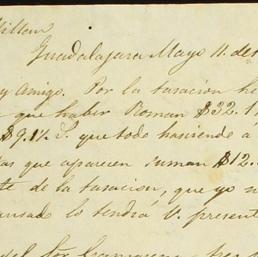 Guadalajara Mayo 11. de
y amigo. Por la tasacion he
que haber Roman $32.1
$9.1½ que todo haciendo á
as que aparecen suman $12.
te de la tasacion, que yo n
ausado lo tendrá V. present